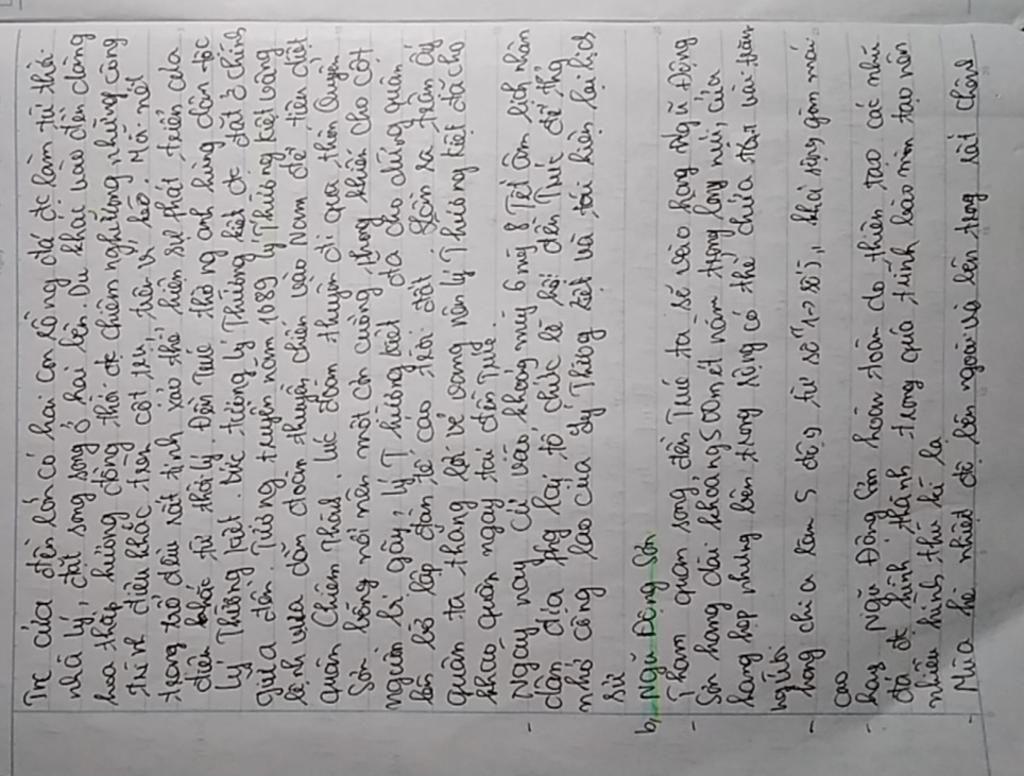 Trc của đền lớn có hai con rồng đá đc làm từ thời
nhà lý, đặt song song ở hai bên. Du khách vào đền dâng
hoa thắp hương đồng thời đc chiêm ngưỡng những công
trình điêu khắc trên cột trụ, trên vì kèo. Mỗi nét
trang trí đều rất tinh xảo thể hiện sự phát triển của
điêu khắc từ thời lý. Đền Trúc thờ ng anh hùng dân tộc
Lý Thường kiệt. Bức tượng lý Thường kiệt đc đặt ở chính
giữa đền. Tương truyền năm 1089 lý Thường kiệt vâng
lệnh vua dẫn đoàn thuyền chiến vào Nam để tiễn diệt
quân Chiêm Thành. Lúc đoàn thuyền đi qua thôn Quyển
Sơn bỗng nổi nên một cơn cuồng phong khiến cho cột
nguồn bị gãy, lý Thường kiệt đã cho dừng quân
lên bờ lập đàn tế cáo trời đất. Sau trận ấy
quân ta thắng lợi vẻ vang nên lý Thường kiệt đã cho
khao quân ngay tại đền Trúc.
- Ngày nay cứ vào khoảng mùng 6 mg 8 Tết âm lịch nhân
dân địa phg hay tổ chức lễ hội đền Trúc để tg
nhớ công lao của lý Thường kiệt và tái hiện lại lịch
sử
b, Ngũ Động Sơn
- Tham quan song, đền Trúc ta sẽ vào hang Ngũ Động
Sơn hang dài khoảng 500m ét nằm trong lòng núi, cửa
hang hẹp nhưng bên trong rộng có thể chứa tận vài trăm
người
- hang chia làm 5 động từ số "1 → số 5",
cao
- hang Ngũ Động Sơn hoàn toàn do thiên tạo các nhũ
đá đc hình thành trong quá trình bào mòn tạo nên
nhiều hình thù kì lạ
- Mùa hè nhiệt độ bên ngoài và bên trong rất chênh